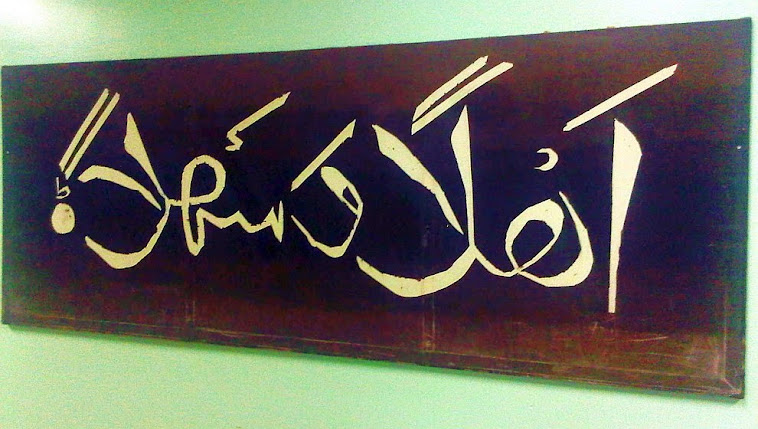 اَهْلًا وَسَهْلًا